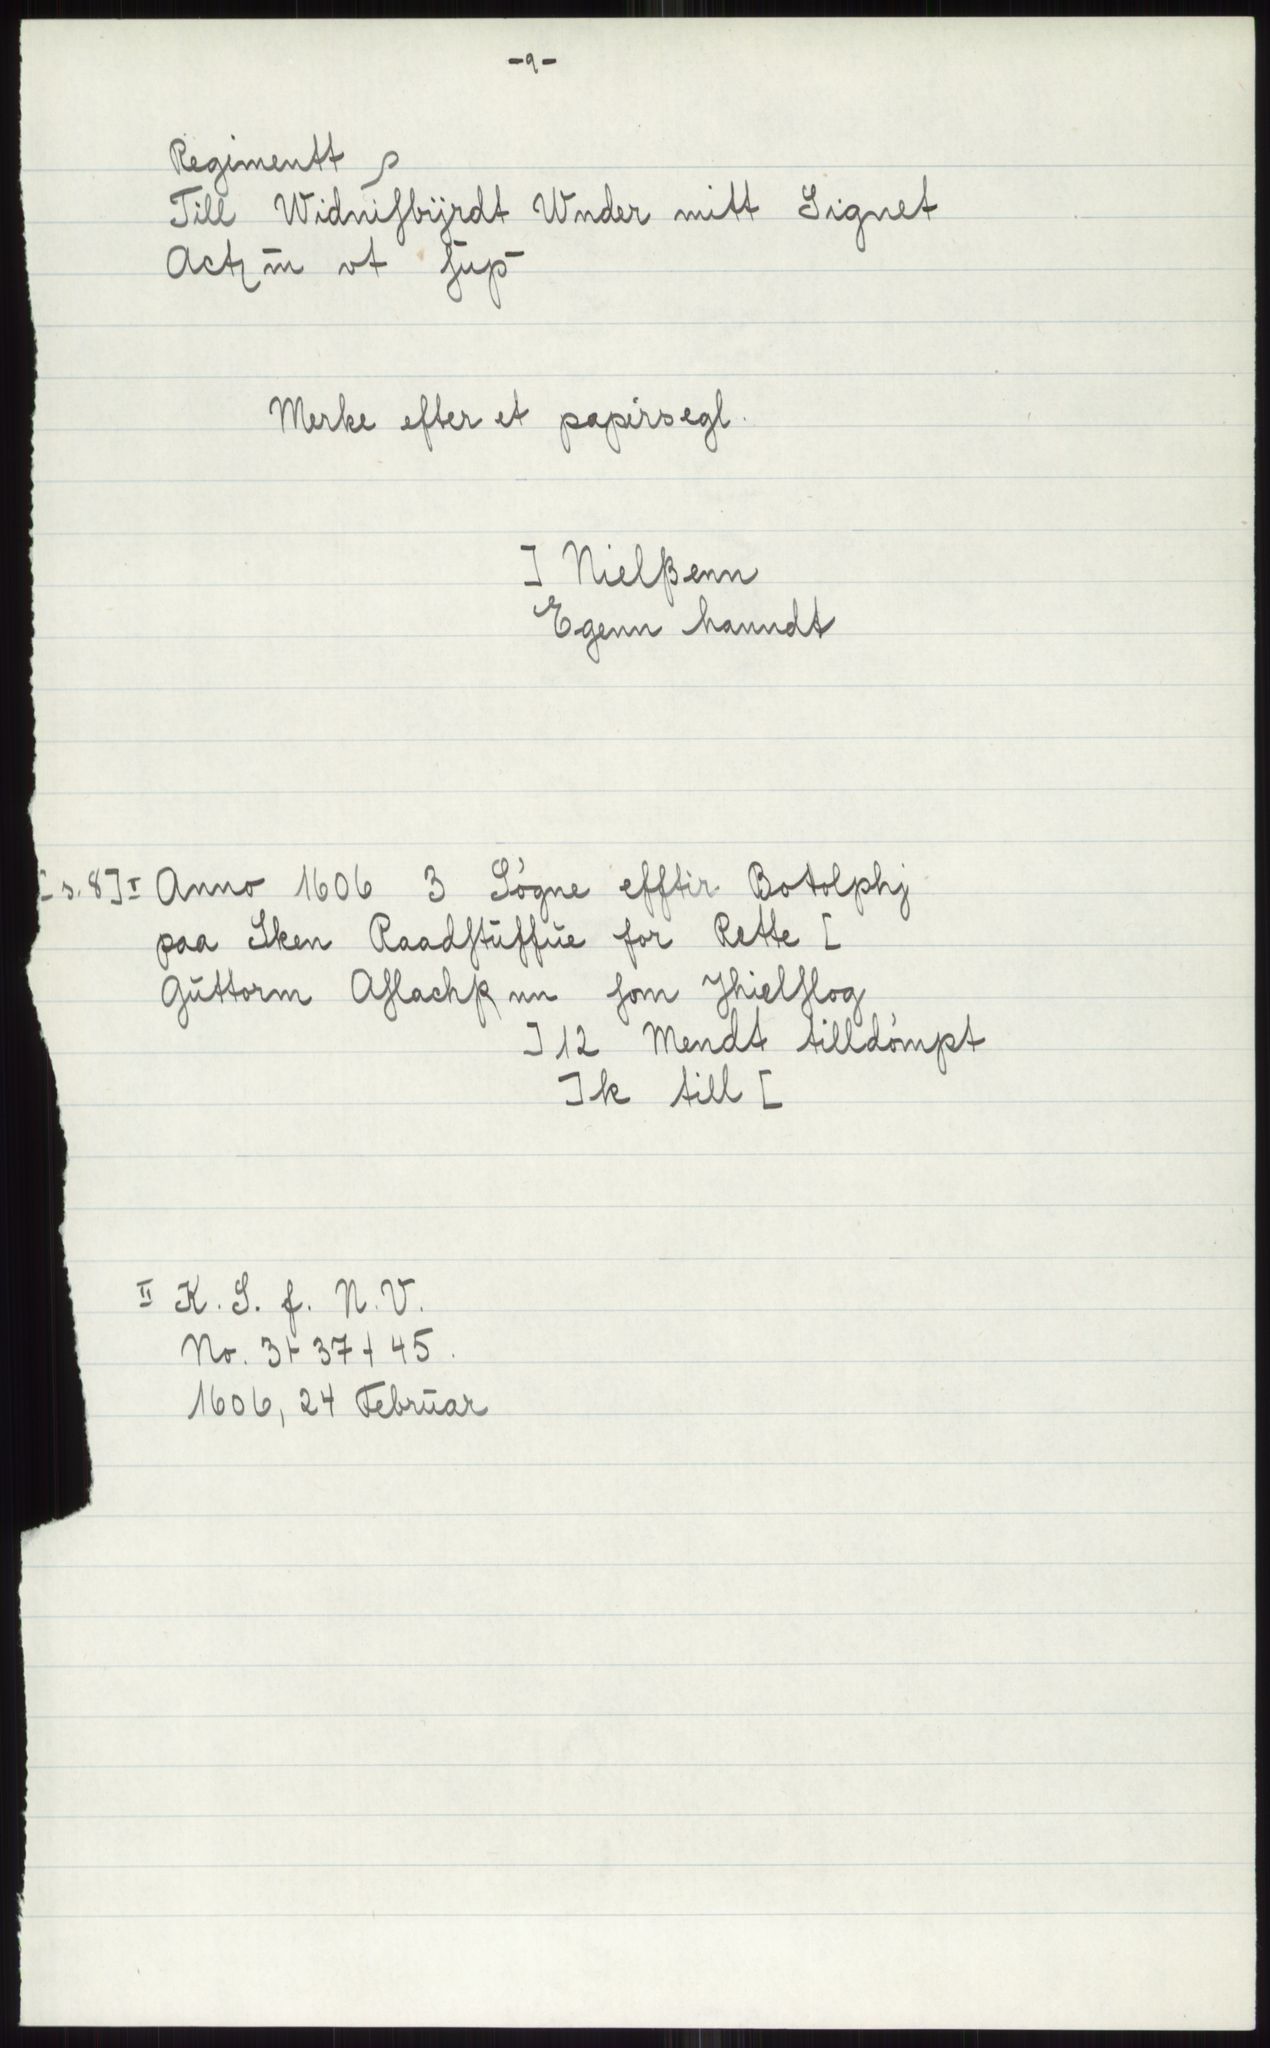 -9-
Regimentt
Till Widniſbÿrdt Wnder mitt Signet
Actꝫ m̄ vt ſup̄
Merke efter et papirsegl.
] Nielßenn
Egenn hanndt
[s.8] I Anno 1606 3 Søgne efftir Botolphj
paa Sken Raadſtuffue for Rette [
Guttorm Aſlachß nn ſom Jhielſlog
] 12 Mendt tilldømpt
] k till [
II K. S. f. N. V.
No. 3 + 37 + 45.
1606, 24 Februar